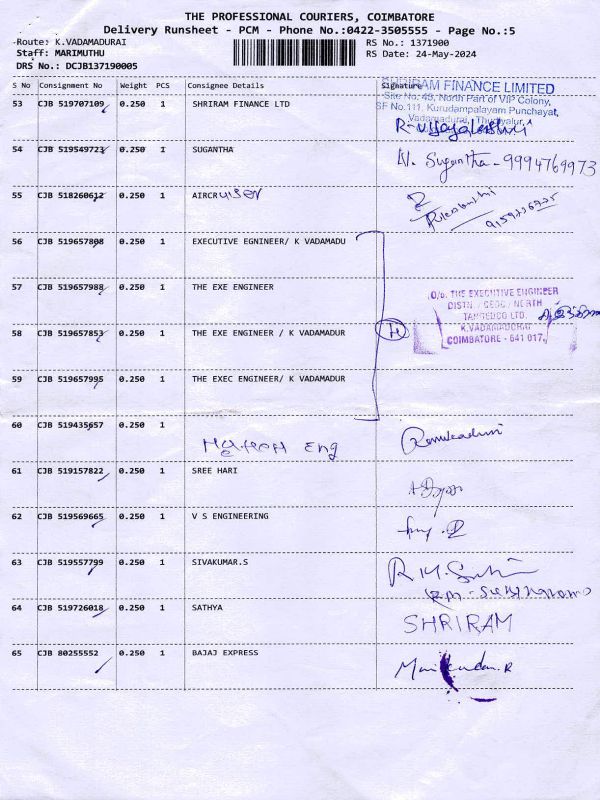 THE PROFESSIONAL COURIERS, COIMBATORE
Delivery Runsheet - PCM - Phone No.:0422-3505555 - Page No.:5
Route: K.VADAMADURAI RS No.: 1371900
Staff: MARIMUTHU RS Date: 24-May-2024
DRS No.: DCJB137190005
S No Consignment No Weight PCS Consignee Details Signature
SHRIRAM FINANCE LIMITED
Site No: 49, North Part of VIP Colony,
53 CJB 519707109 0.250 1 SHRIRAM FINANCE LTD SF No.111, Kurudampalayam Punchayat,
Vadamadurai, Thudiyalur,
R-vijayalakshmi
54 CJB 519549723 0.250 1 SUGANTHA N. Sugantha - 9994769973
55 CJB 518260612 0.250 1 AIRCRUISER
56 CJB 519657808 0.250 1 EXECUTIVE EGNINEER/ K VADAMADU
57 CJB 519657988 0.250 1 THE EXE ENGINEER
O/o. THE EXECUTIVE ENGINEER
DISTN. / CEDC / NORTH
TANGEDCO LTD.
58 CJB 519657853 0.250 1 THE EXE ENGINEER / K VADAMADUR H K.VADAMADURAI
COIMBATORE - 641 017.
59 CJB 519657995 0.250 1 THE EXEC ENGINEER/ K VADAMADUR
60 CJB 519435657 0.250 1
Eng
61 CJB 519157822 0.250 1 SREE HARI
62 CJB 519569665 0.250 1 V S ENGINEERING
63 CJB 519557799 0.250 1 SIVAKUMAR.S
64 CJB 519726018 0.250 1 SATHYA SHRIRAM
65 CJB 80255552 0.250 1 BAJAJ EXPRESS